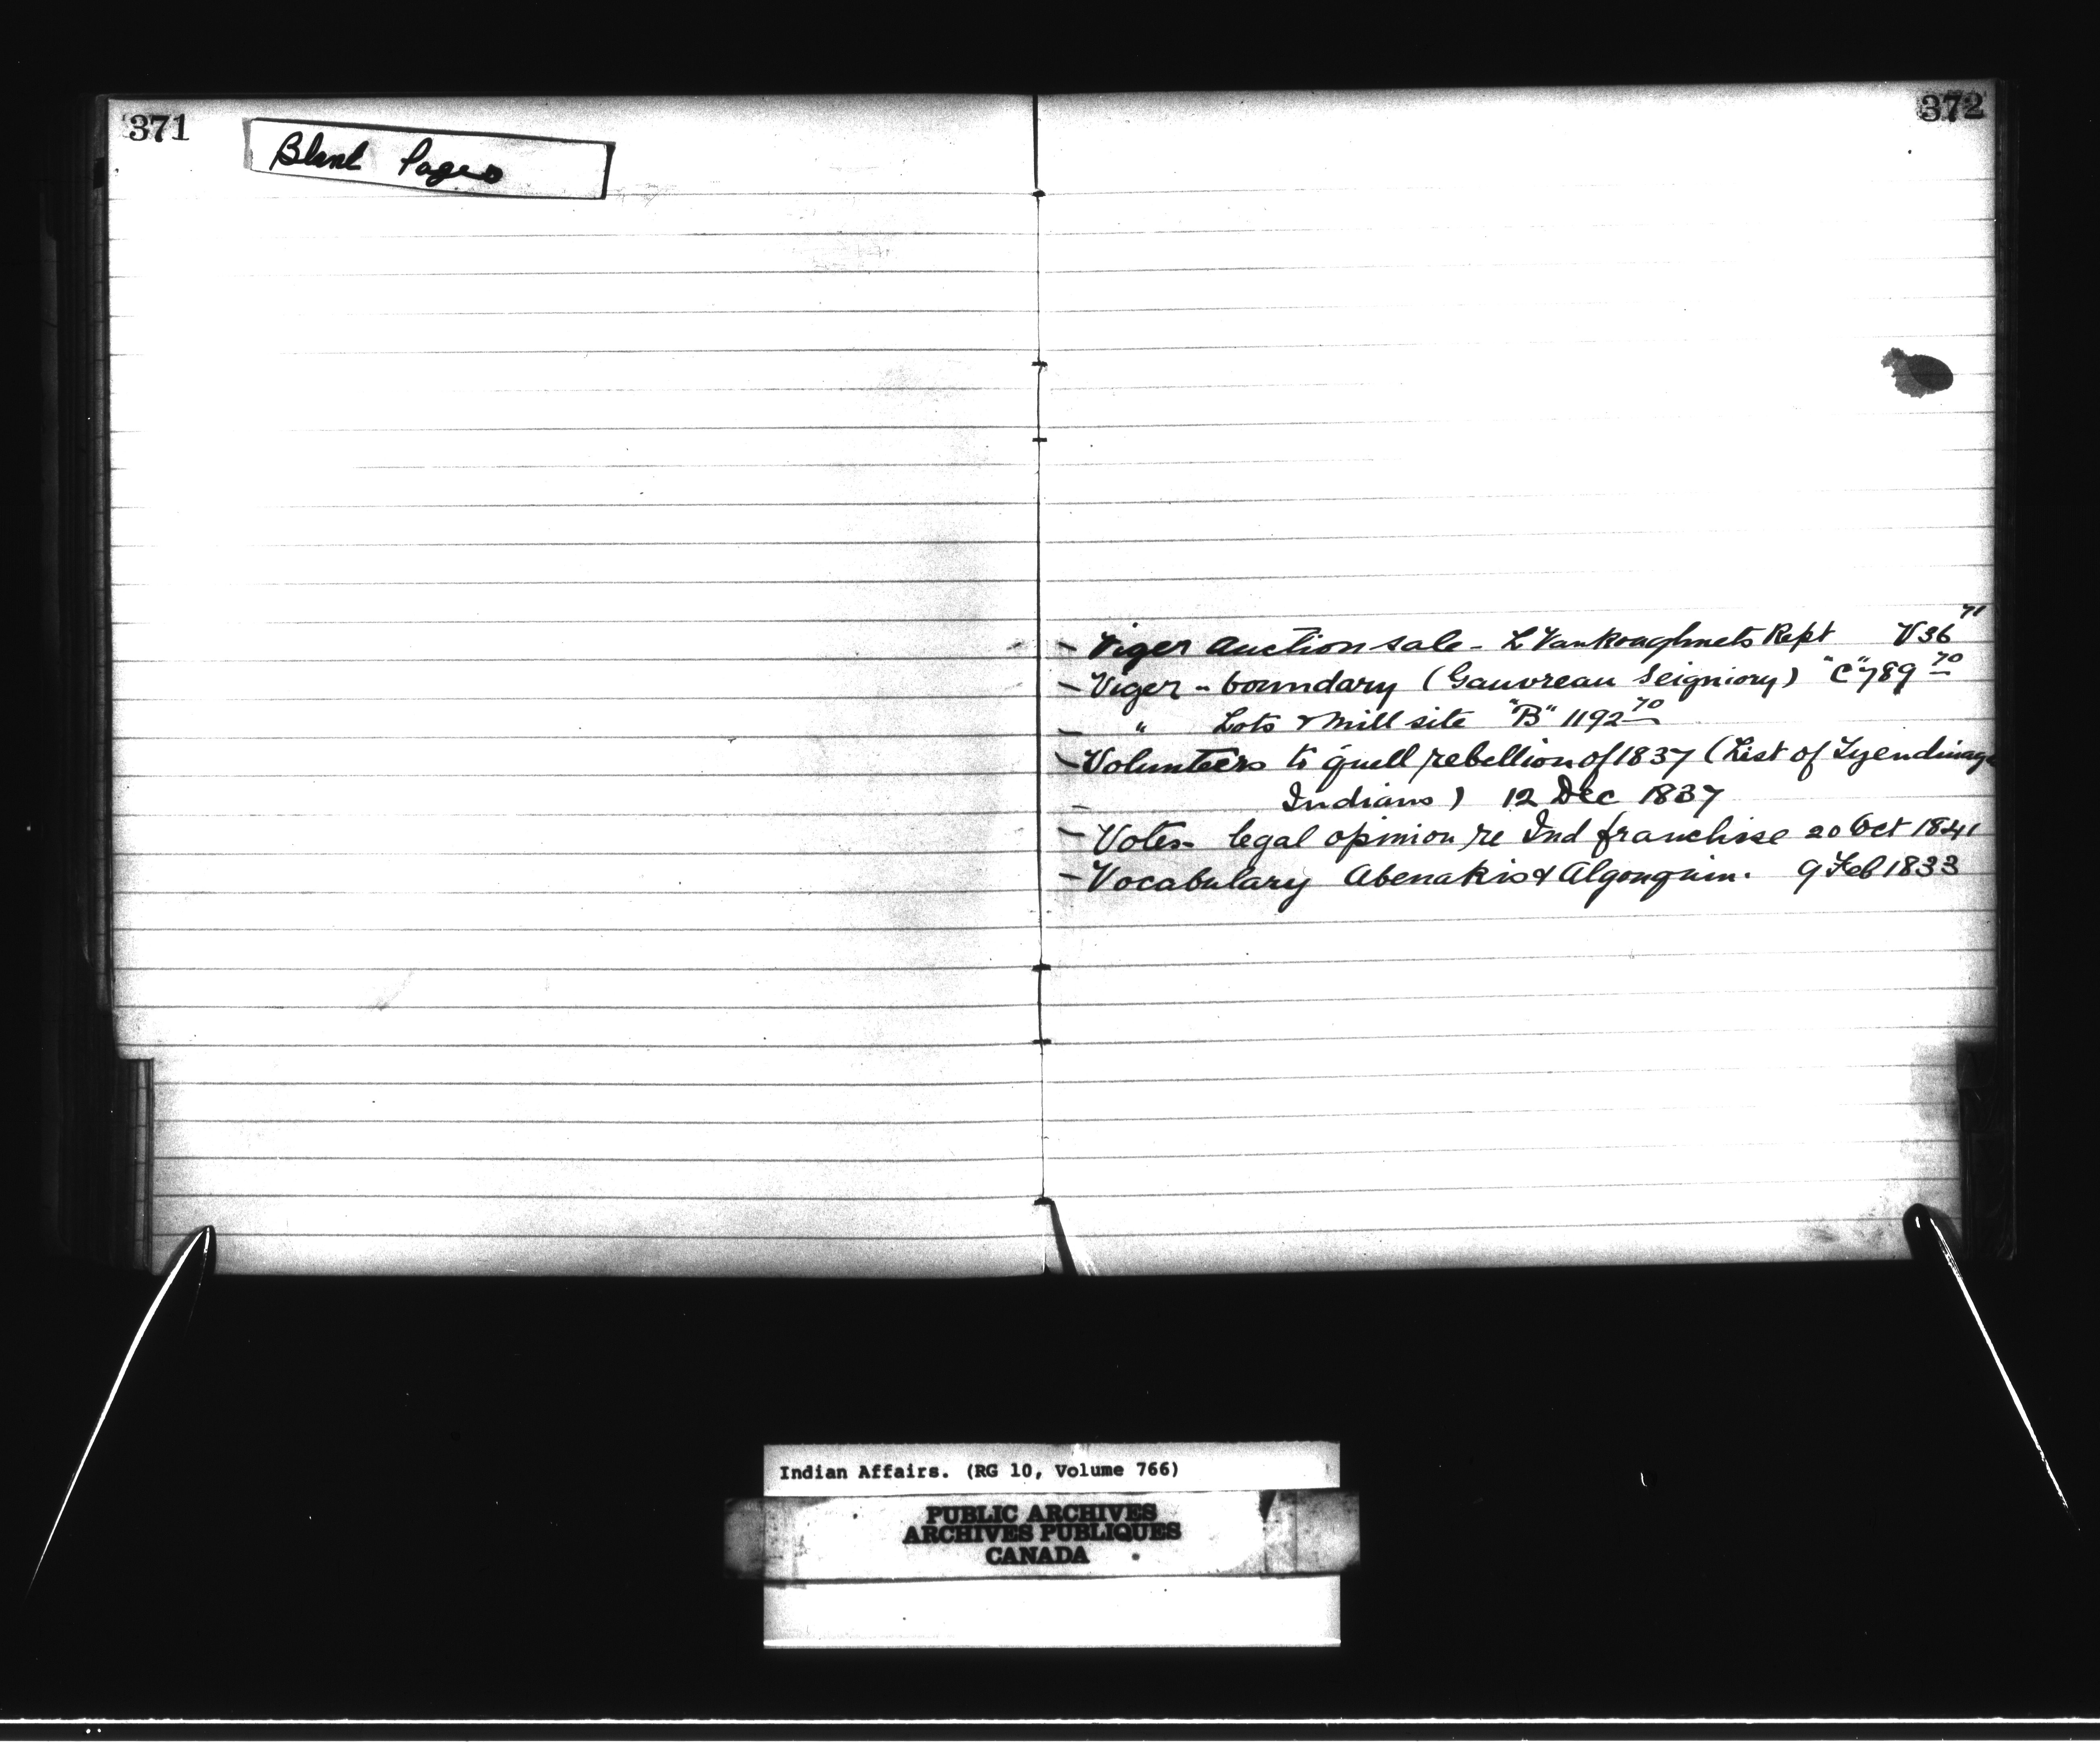 371
Blank Pages
372
– Viger Auction sale – L Vankoughnets Rept V36 71
– Viger – boundary (Gauvreau Seigniory) "C" 789 70
– " Lots & Mill site "B" 1192 70
– Volunteers to quell rebellion of 1837 (List of Tyendinaga
– Indians) 12 Dec 1837
– Votes – legal opinion re Ind franchise 20 Oct 1841
– Vocabulary Abenakis & Algonquin. 9 Feb 1833
Indian Affairs. (RG 10, Volume 766)
PUBLIC ARCHIVES
ARCHIVES PUBLIQUES
CANADA